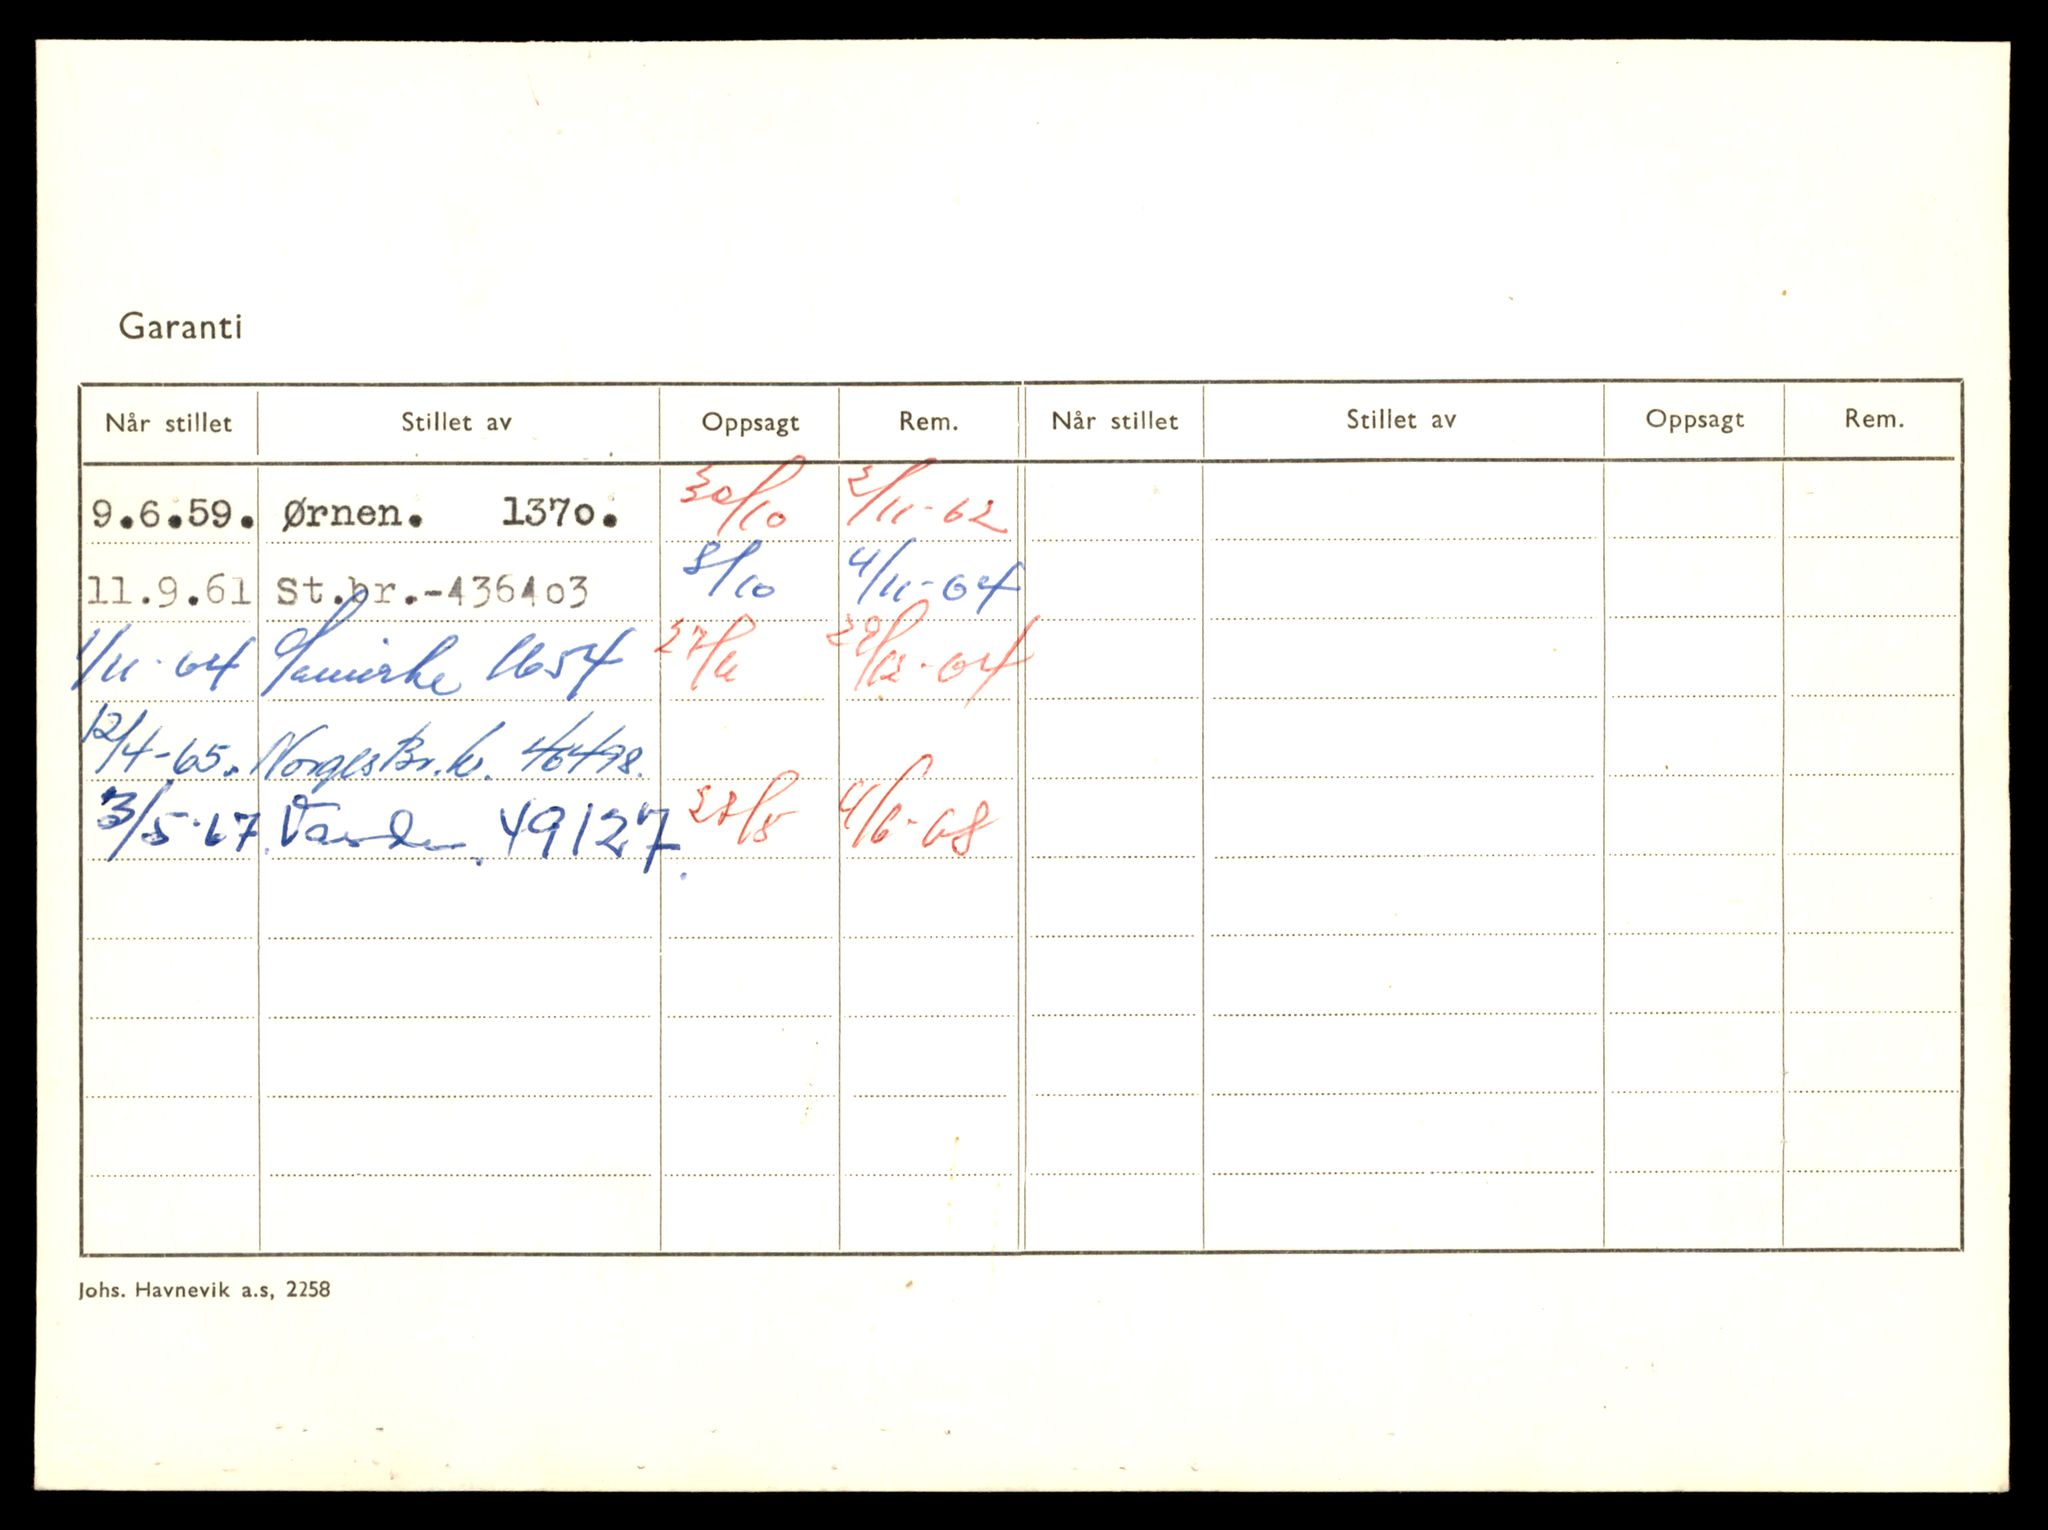 Garanti
Når stillet Stillet av Oppsagt Rem. Når stillet Stillet av Oppsagt Rem.
9.6.59. Ørnen. 1370. 30/10 2/11-62
11.9.61 St.br.-436403 8/10 4/11-64
1/11-64 Samvirke 1654 27/11 29/12-64
12/4-65. Norges Br.k. 46498.
3/5-67. Varden. 49127. 28/5 4/6-68
Johs. Havnevik a.s, 2258